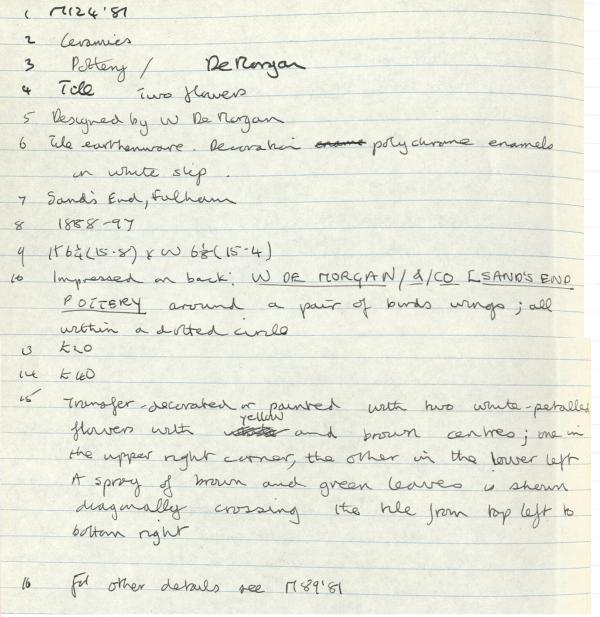 1 M124'81
2 Ceramics
3 Pottery / De Morgan
4 Tile Two flowers
5 Designed by W De Morgan
6 Tile earthenware. Decoration polychrome enamels
on white slip.
7 Sand's End, Fulham
8 1888-97
9 H 6¼ (15.8) x W 6⅛ (15.4)
10 Impressed on back: W DE MORGAN / & / CO [SAND'S END
POTTERY around a pair of birds wings; all
within a dotted circle
13 £20
14 £40
15 Transfer-decorated or painted with two white-petalled
flowers with yellow and brown centres; one in
the upper right corner, the other in the lower left
A spray of brown and green leaves is shewn
diagonally crossing the tile from top left to
bottom right
16 For other details see M89'81